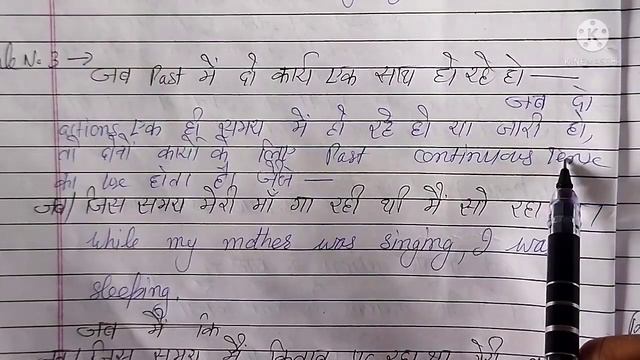 No. 3 → जब Past में दो कार्य एक साथ हो रहे हो —
जब दो
actions एक ही समय में हो रहे हो या जारी हो,
तो दोनों कार्यो के लिए Past continuous Tense
का use होता है। जैसे —
जब/जिस समय मेरी माँ गा रही थी मैं सो रहा
while my mother was singing, I wa
sleeping.
जब मैं कि
जब/जिस समय मैं किताब पढ़ रहा था मेरी